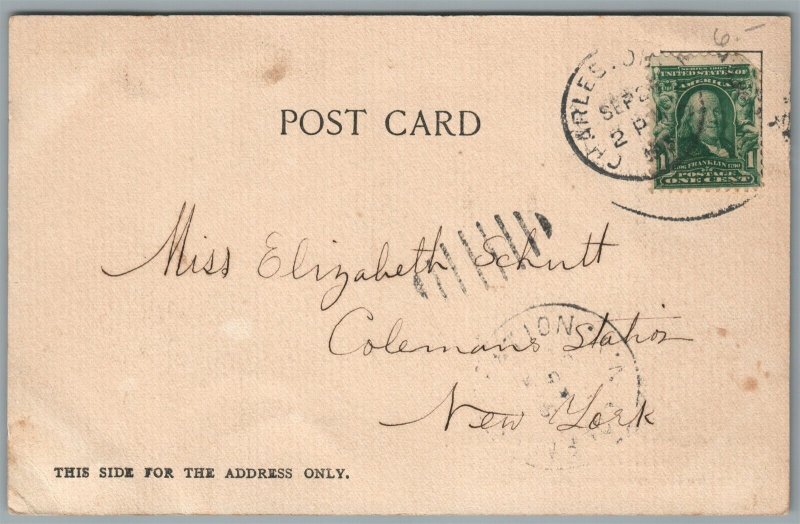 POST CARD
CHARLES
SEP
2 P
UNITED STATES OF
AMERICA
1 FRANKLIN 1790 1
POSTAGE
ONE CENT
Miss Elizabeth Schutt
Colemans Station
New York
THIS SIDE FOR THE ADDRESS ONLY.